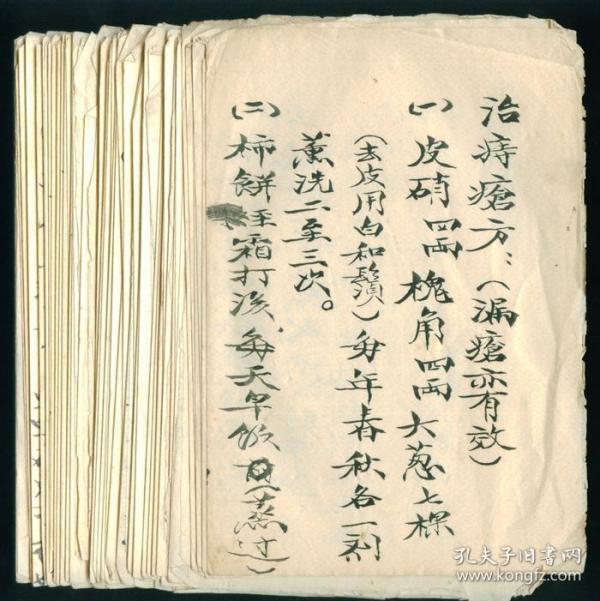 治痔瘡方:(漏瘡亦有效)
(一)皮硝四兩 槐角四兩 大葱七棵
(去皮用白和鬚)每年春秋各一剂
薰洗二至三次。
(二)柿餅至霜打後,每天早飯(蒸过)
孔夫子旧书网
www.kongfz.com